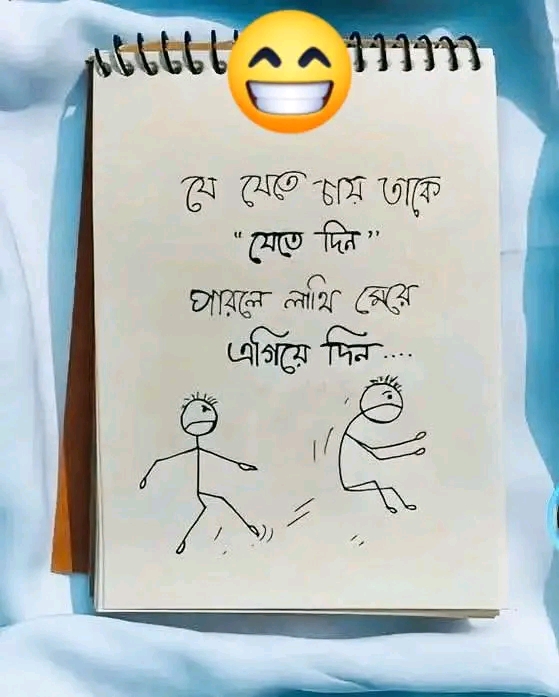 যে যেতে চায় তাকে
"যেতে দিন"
পারলে লাথি মেরে
এগিয়ে দিন....